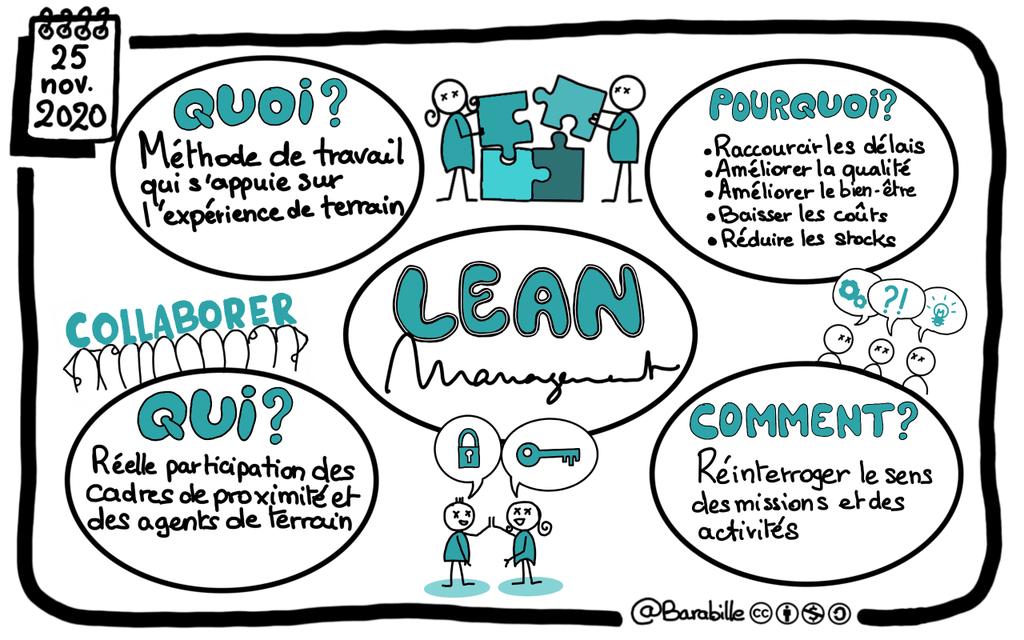 25
nov.
2020
QUOi?
Méthode de travail
qui s'appuie sur
l'expérience de terrain
POURQUOi?
• Raccourcir les délais
• Améliorer la qualité
• Améliorer le bien-être
• Baisser les coûts
• Réduire les stocks
LEAN
Management
COLLABORER
?!
QUi?
Réelle participation des
cadres de proximité et
des agents de terrain
COMMENT?
Réinterroger le sens
des missions et des
activités
@Barabille cc